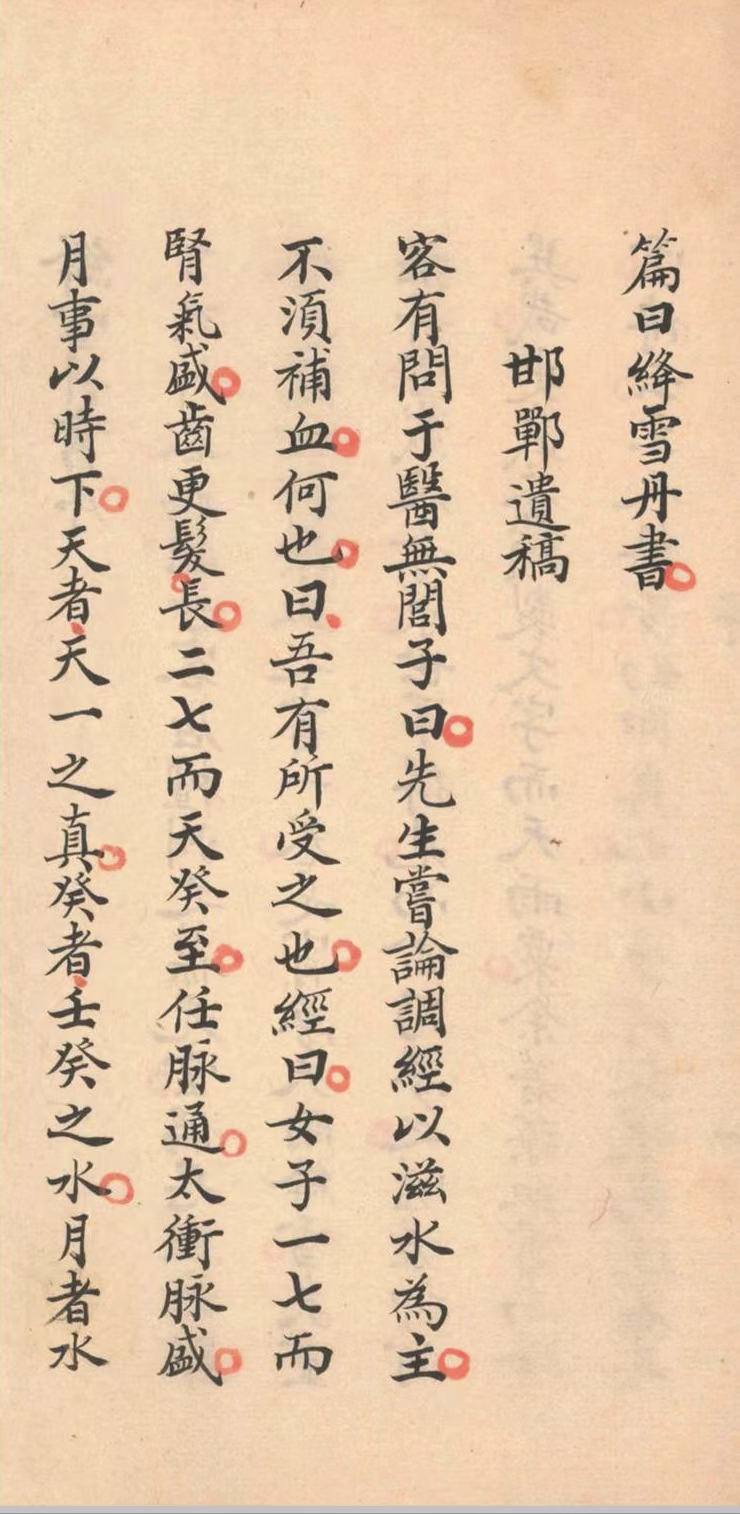 篇曰絳雪丹書
邯鄲遺稿
容有問于醫無閭子曰先生嘗論調經以滋水為主
不須補血何也曰吾有所受之也經曰女子一七而
腎氣盛齒更髮長二七而天癸至任脉通太衝脉盛
月事以時下天者天一之真癸者壬癸之水月者水